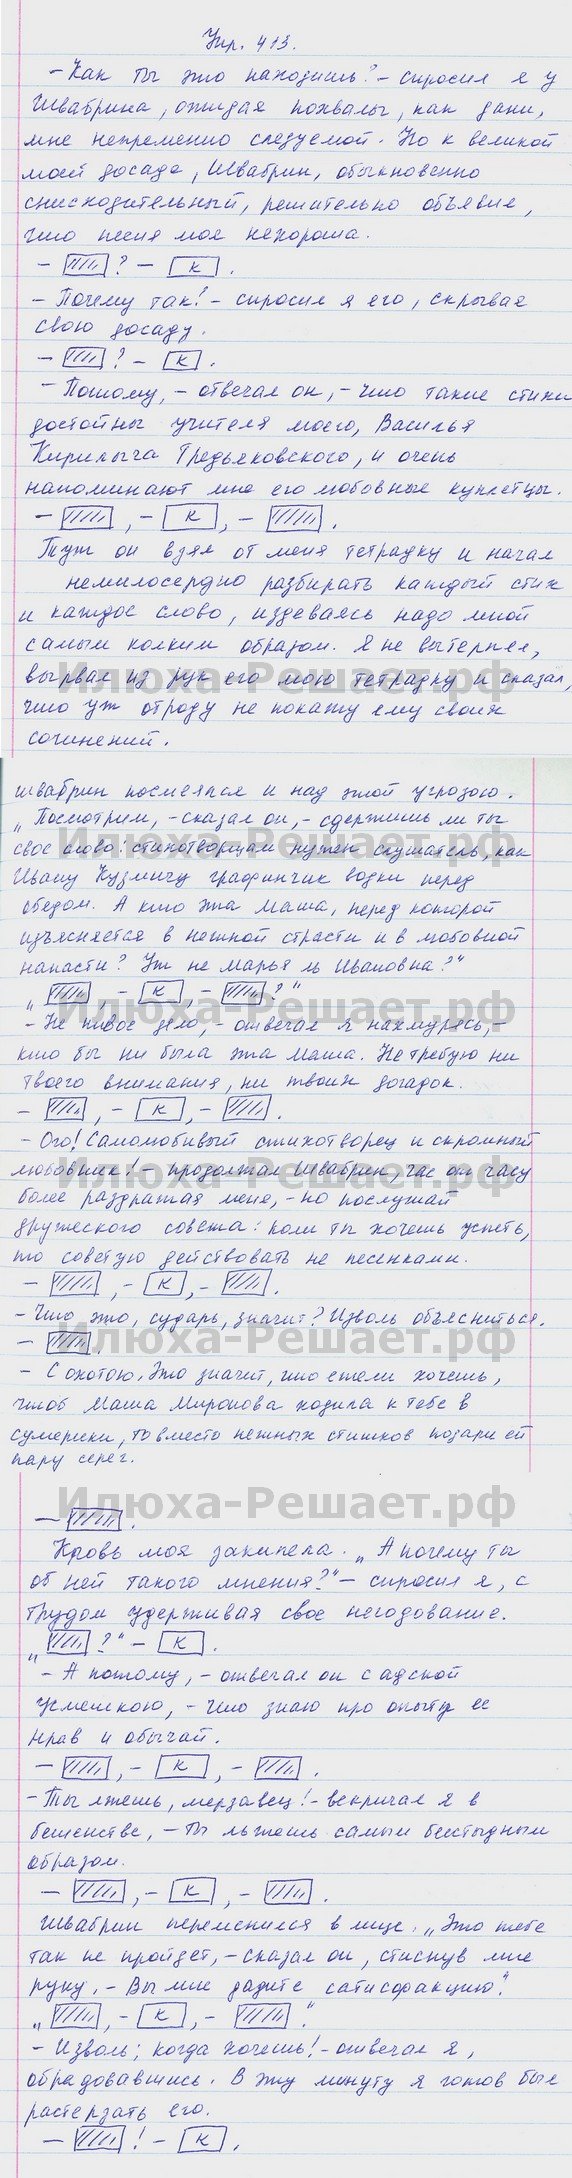 Упр. 413.
– Как ты это находишь? – спросил я у
Швабрина, ожидая похвалы, как дани,
мне непременно следуемой. Но к великой
моей досаде, Швабрин, обыкновенно
снисходительный, решительно объявил,
что песня моя нехороша.
– ? – К .
– Почему так? – спросил я его, скрывая
свою досаду.
– ? – К .
– Потому, – отвечал он, – что такие стихи
достойны учителя моего, Василья
Кирилыча Тредьяковского, и очень
напоминают мне его любовные куплетцы.
– , – К , – .
Тут он взял от меня тетрадку и начал
немилосердно разбирать каждый стих
и каждое слово, издеваясь надо мной
самым колким образом. Я не вытерпел,
вырвал из рук его мою тетрадку и сказал,
что уж отроду не покажу ему своих
сочинений.
Илюха-Решает.рф
Швабрин посмеялся и над этой угрозою.
„Посмотрим, – сказал он, – сдержишь ли ты
свое слово: стихотворцам нужен слушатель, как
Ивану Кузмичу графинчик водки перед
обедом. А кто эта Маша, перед которой
изъясняется в нежной страсти и в любовной
напасти? Уж не Марья ль Ивановна?“
Илюха-Решает.рф
„ , – К , – ?“
Илюха-Решает.рф
– Не твое дело, – отвечал я нахмурясь, –
кто бы ни была эта Маша. Не требую ни
твоего внимания, ни твоих догадок.
– , – К , – .
– Ого! Самолюбивый стихотворец и скромный
любовник! – продолжал Швабрин, час от часу
более раздражая меня, – но послушай
дружеского совета: коли ты хочешь успеть,
то советую действовать не песенками.
Илюха-Решает.рф
– , – К , – .
– Что это, сударь, значит? Изволь объясниться.
– .
Илюха-Решает.рф
– С охотою. Это значит, что ежели хочешь,
чтоб Маша Миронова ходила к тебе в
сумерки, то вместо нежных стишков подари ей
пару серег.
– .
Илюха-Решает.рф
Кровь моя закипела. „А почему ты
об ней такого мнения?“ – спросил я, с
трудом удерживая свое негодование.
„ ?“ – К .
– А потому, – отвечал он с адской
усмешкою, – что знаю про опыту ее
нрав и обычай.
– , – К , – .
– Ты лжешь, мерзавец! – вскричал я в
бешенстве, – ты лжешь самым бесстыдным
образом.
– , – К , – .
Швабрин переменился в лице. „Это тебе
так не пройдет, – сказал он, стиснув мне
руку. – Вы мне дадите сатисфакцию“.
„ , – К , – “.
– Изволь; когда хочешь! – отвечал я,
обрадовавшись. В эту минуту я готов был
растерзать его.
– ! – К .